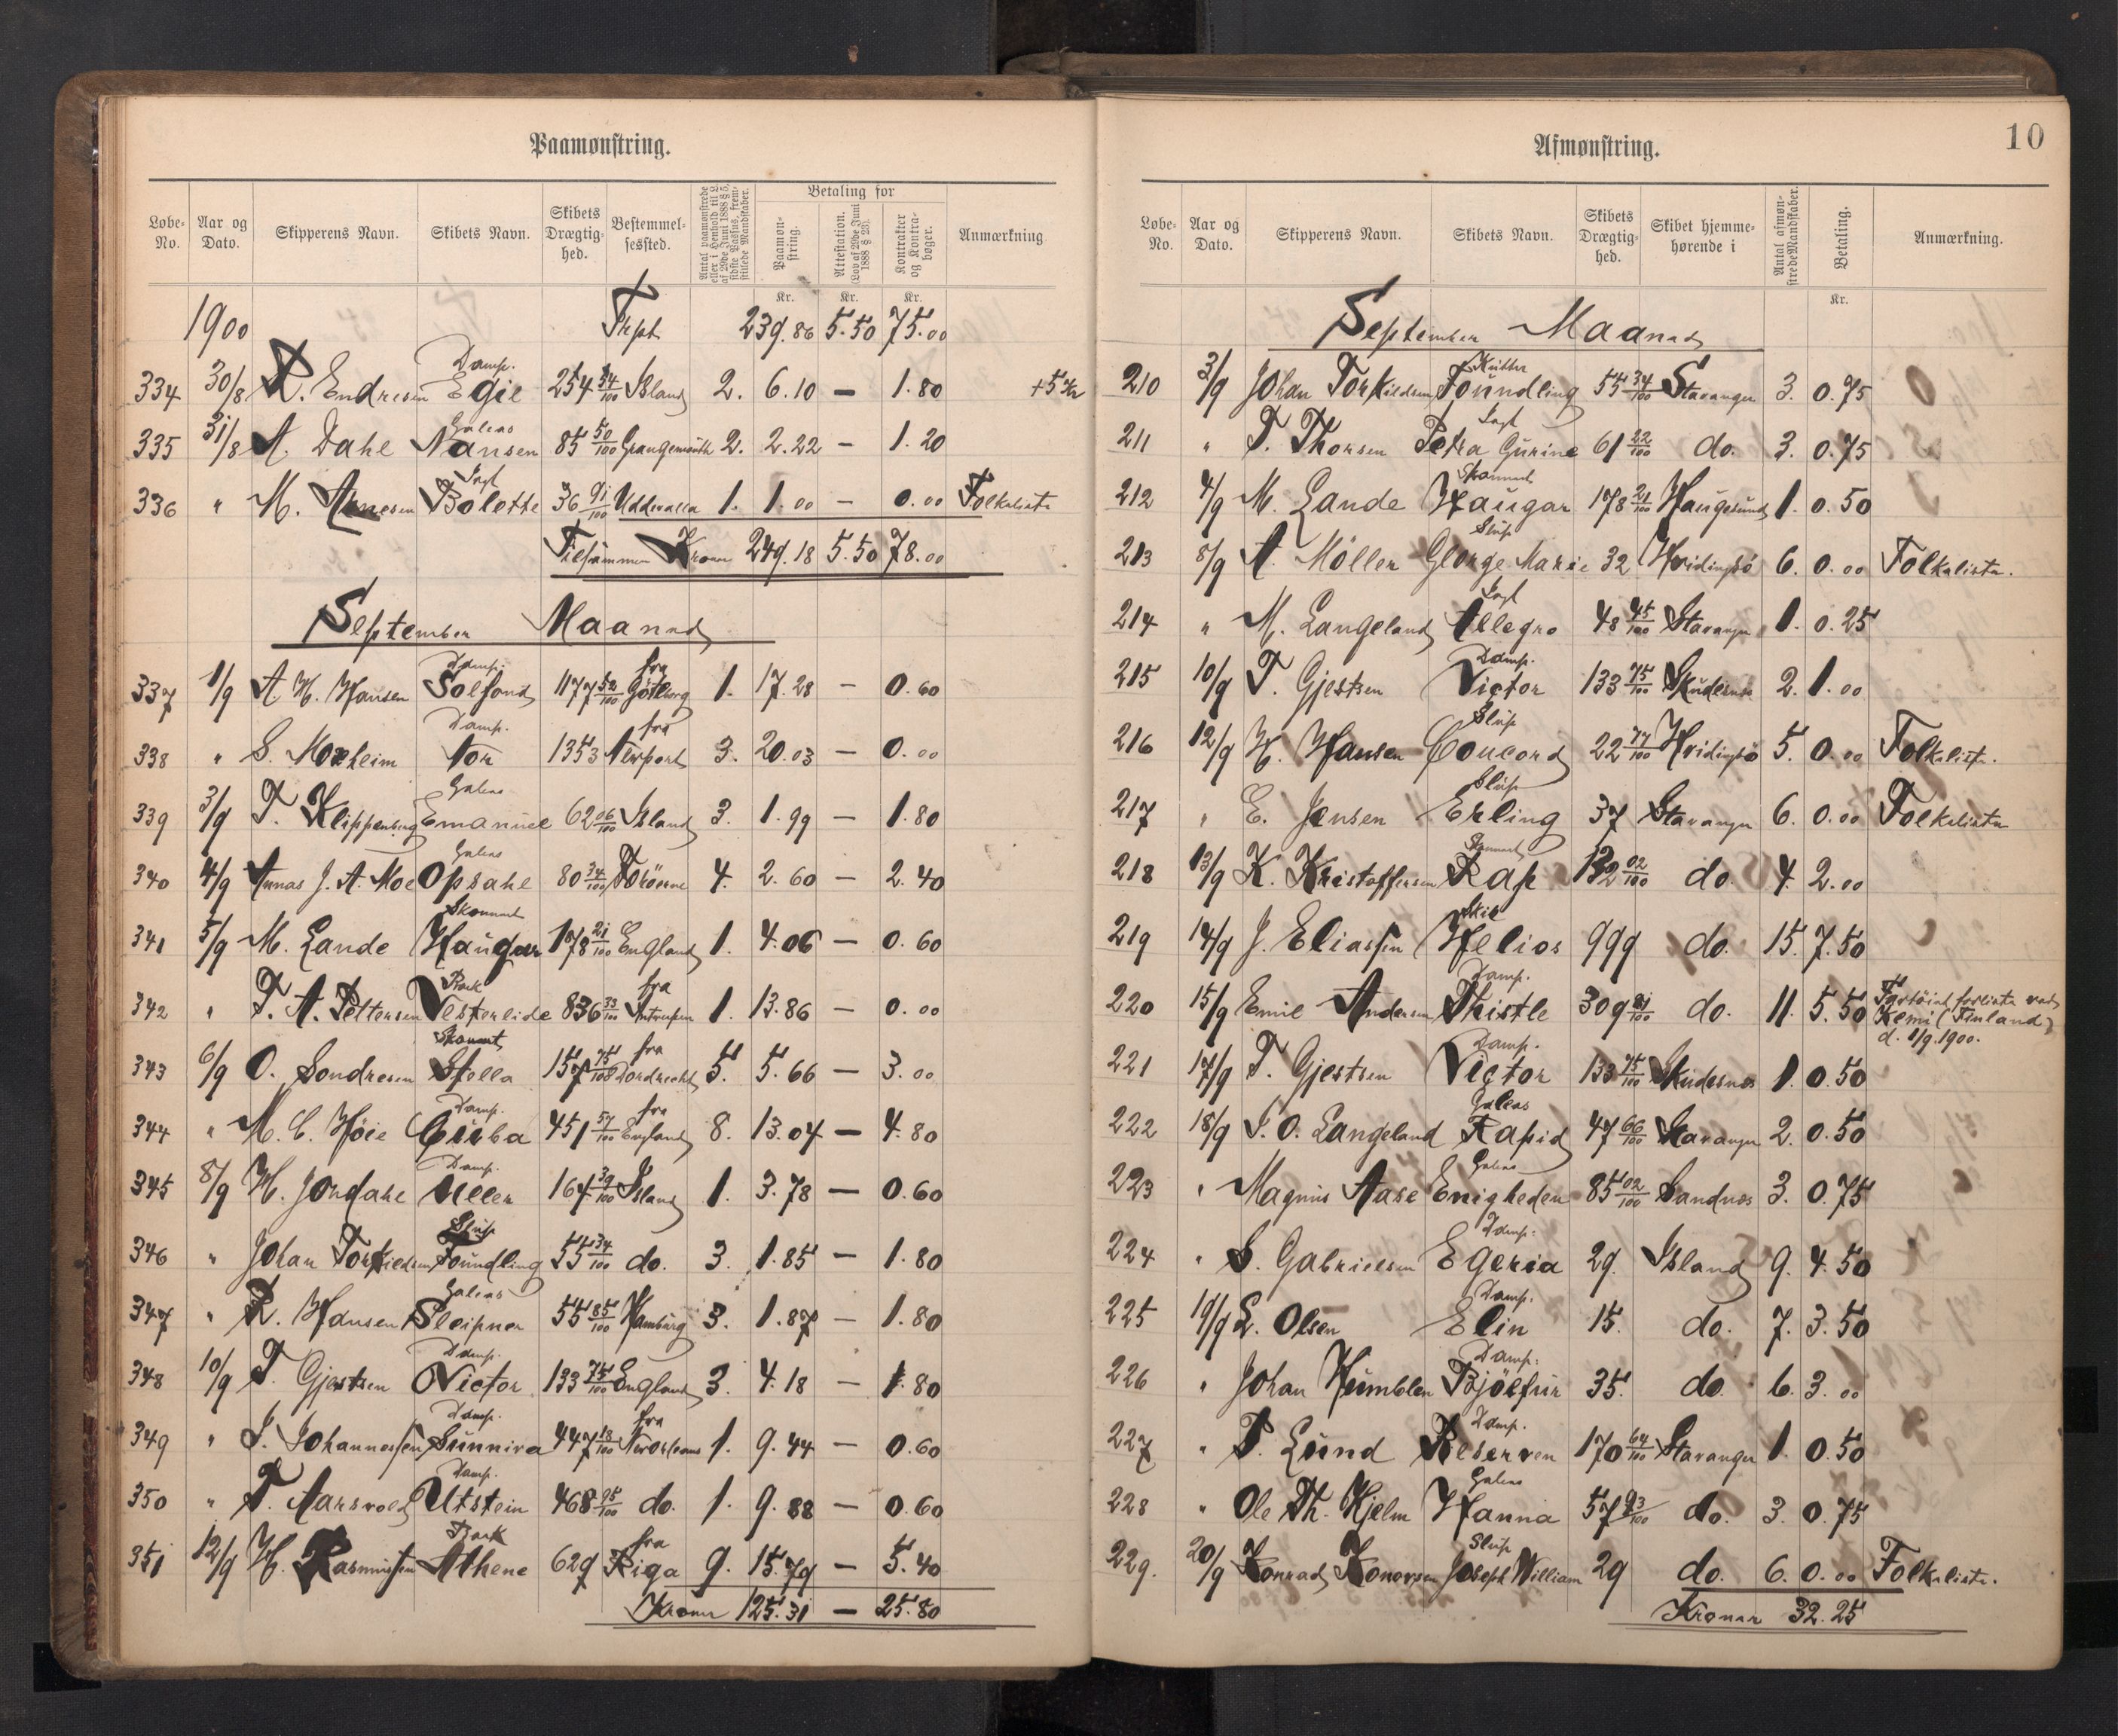 Paamønstring.
Løbe-No. Aar og Dato. Skipperens Navn. Skibets Navn. Skibets Drægtig-hed. Bestemmel-sessted. Antal paamønstrede eller i Henhold til L. af 29de Juni 1888 § 5, sidste Passus, frem-stillede Mandskaber. Betaling for Paamøn-string. Attestation. (Lov af 29de Juni 1888 § 23). Kontrakter og Kontra-bøger. Anmærkning
Kr. Kr. Kr.
1900 Trpt 239.86 5.50 75.00
334 30/8 R. Endresen Damp. Egil 254 54/100 Island 2. 6.10 — 1.80 +5 Kr
335 31/8 A. Dahl Galeas Nansen 85 50/100 Grangemouth 2. 2.22 — 1.20
336 " M. Arnesen Jagt Bolette 36 91/100 Uddevalla 1. 1.00 — 0.00 Folkeliste
Tilsammen Kroner 249.18 5.50 78.00
September Maaned
337 1/9 A H. Hansen Damp. Solfond 1177 52/100 fra Göteborg 1. 17.28 — 0.60
338 " S. Moxheim Damp. Tor 1353 fra Newport 3. 20.03 — 0.00
339 3/9 T. Klippenberg Galeas Emanuel 62 06/100 Island 3. 1.99 — 1.80
340 4/9 Annas J. A. Moe Galeas Opsahl 80 34/100 Færöerne 4. 2.60 — 2.40
341 5/9 M. Lande Skonnert Haugar 178 21/100 England 1. 4.06 — 0.60
342 " T. A. Pettersen Bark Vesterlide 836 33/100 fra Antwerpen 1. 13.86 — 0.00
343 6/9 O. Sondresen Skonnert Stella 157 75/100 fra Dordrecht 5. 5.66 — 3.00
344 " M. C. Höie Damp. Ciuba 451 57/100 fra England 8. 13.04 — 4.80
345 8/9 H. Jordahl Damp. Uller 164 39/100 Island 1. 3.78 — 0.60
346 " Johan Torkildsen Slup Foundling 55 34/100 do. 3. 1.85 — 1.80
347 " R. Hansen Galeas Sleipner 55 85/100 Hamburg 3. 1.87 — 1.80
348 10/9 T. Gjestsen Damp. Victor 133 75/100 England 3. 4.18 — 1.80
349 " J. Johannessen Damp. Sunniva 447 18/100 fra New Orleans 1. 9.44 — 0.60
350 " T. Aarsvold Damp. Utstein 468 95/100 do. 1. 9.88 — 0.60
351 12/9 H. Rasmussen Bark Athene 629 fra Riga 9. 15.79 — 5.40
Kroner 125.31 — 25.80
10
Afmønstring.
Løbe-No. Aar og Dato. Skipperens Navn. Skibets Navn. Skibets Drægtig-hed. Skibet hjemme-hørende i Antal afmøn-strede Mandskaber. Betaling. Anmærkning.
Kr.
September Maaned
210 3/9 Johan Torkildsen Kutter Foundling 55 34/100 Stavanger 3. 0.75
211 " T. Thorsen Jagt Petra Gurine 61 22/100 do. 3. 0.75
212 4/9 M. Lande Skonnert Haugar 178 21/100 Haugesund 1. 0.50
213 8/9 A. Möller Slup George Marie 32 Hvidingsö 6. 0.00 Folkeliste.
214 " M. Langeland Jagt Allegro 48 45/100 Stavanger 1. 0.25
215 10/9 T. Gjestsen Damp. Victor 133 75/100 Skudesnes 2. 1.00
216 12/9 H. Hansen Slup Concord 22 77/100 Hvidingsö 5. 0.00 Folkeliste.
217 " E. Jensen Slup Erling 37 Stavanger 6. 0.00 Folkeliste
218 13/9 K. Kristoffersen Skonnert Rap 132 02/100 do. 4. 2.00
219 14/9 J. Eliassen Skib Helios 999 do. 15. 7.50
220 15/9 Emil Andersen Damp. Thistle 309 81/100 do. 11. 5.50 Fartöiet forliste ved Kemi (Finland) d. 1/9.1900.
221 17/9 T. Gjestsen Damp. Victor 133 75/100 Skudesnes 1. 0.50
222 18/9 S. O. Langeland Galeas Rapid 47 66/100 Stavanger 2. 0.50
223 " Magnus Aase Galeas Enigheden 85 02/100 Sandnes 3. 0.75
224 " S. Gabrielsen Damp. Egeria 29. Island 9. 4.50
225 19/9 L. Olsen Damp. Elin 15. do. 7. 3.50
226 " Johan Humblen Damp. Bjölfur 35. do. 6. 3.00
227 " P. Lund Damp. Reserven 170 64/100 Stavanger 1. 0.50
228 " Ole Th. Hjelm Galeas Hanna 57 93/100 do. 3. 0.75
229. 20/9 Konrad Konowsen Slup Joseph William 29 do. 6. 0.00 Folkeliste.
Kroner 32.25